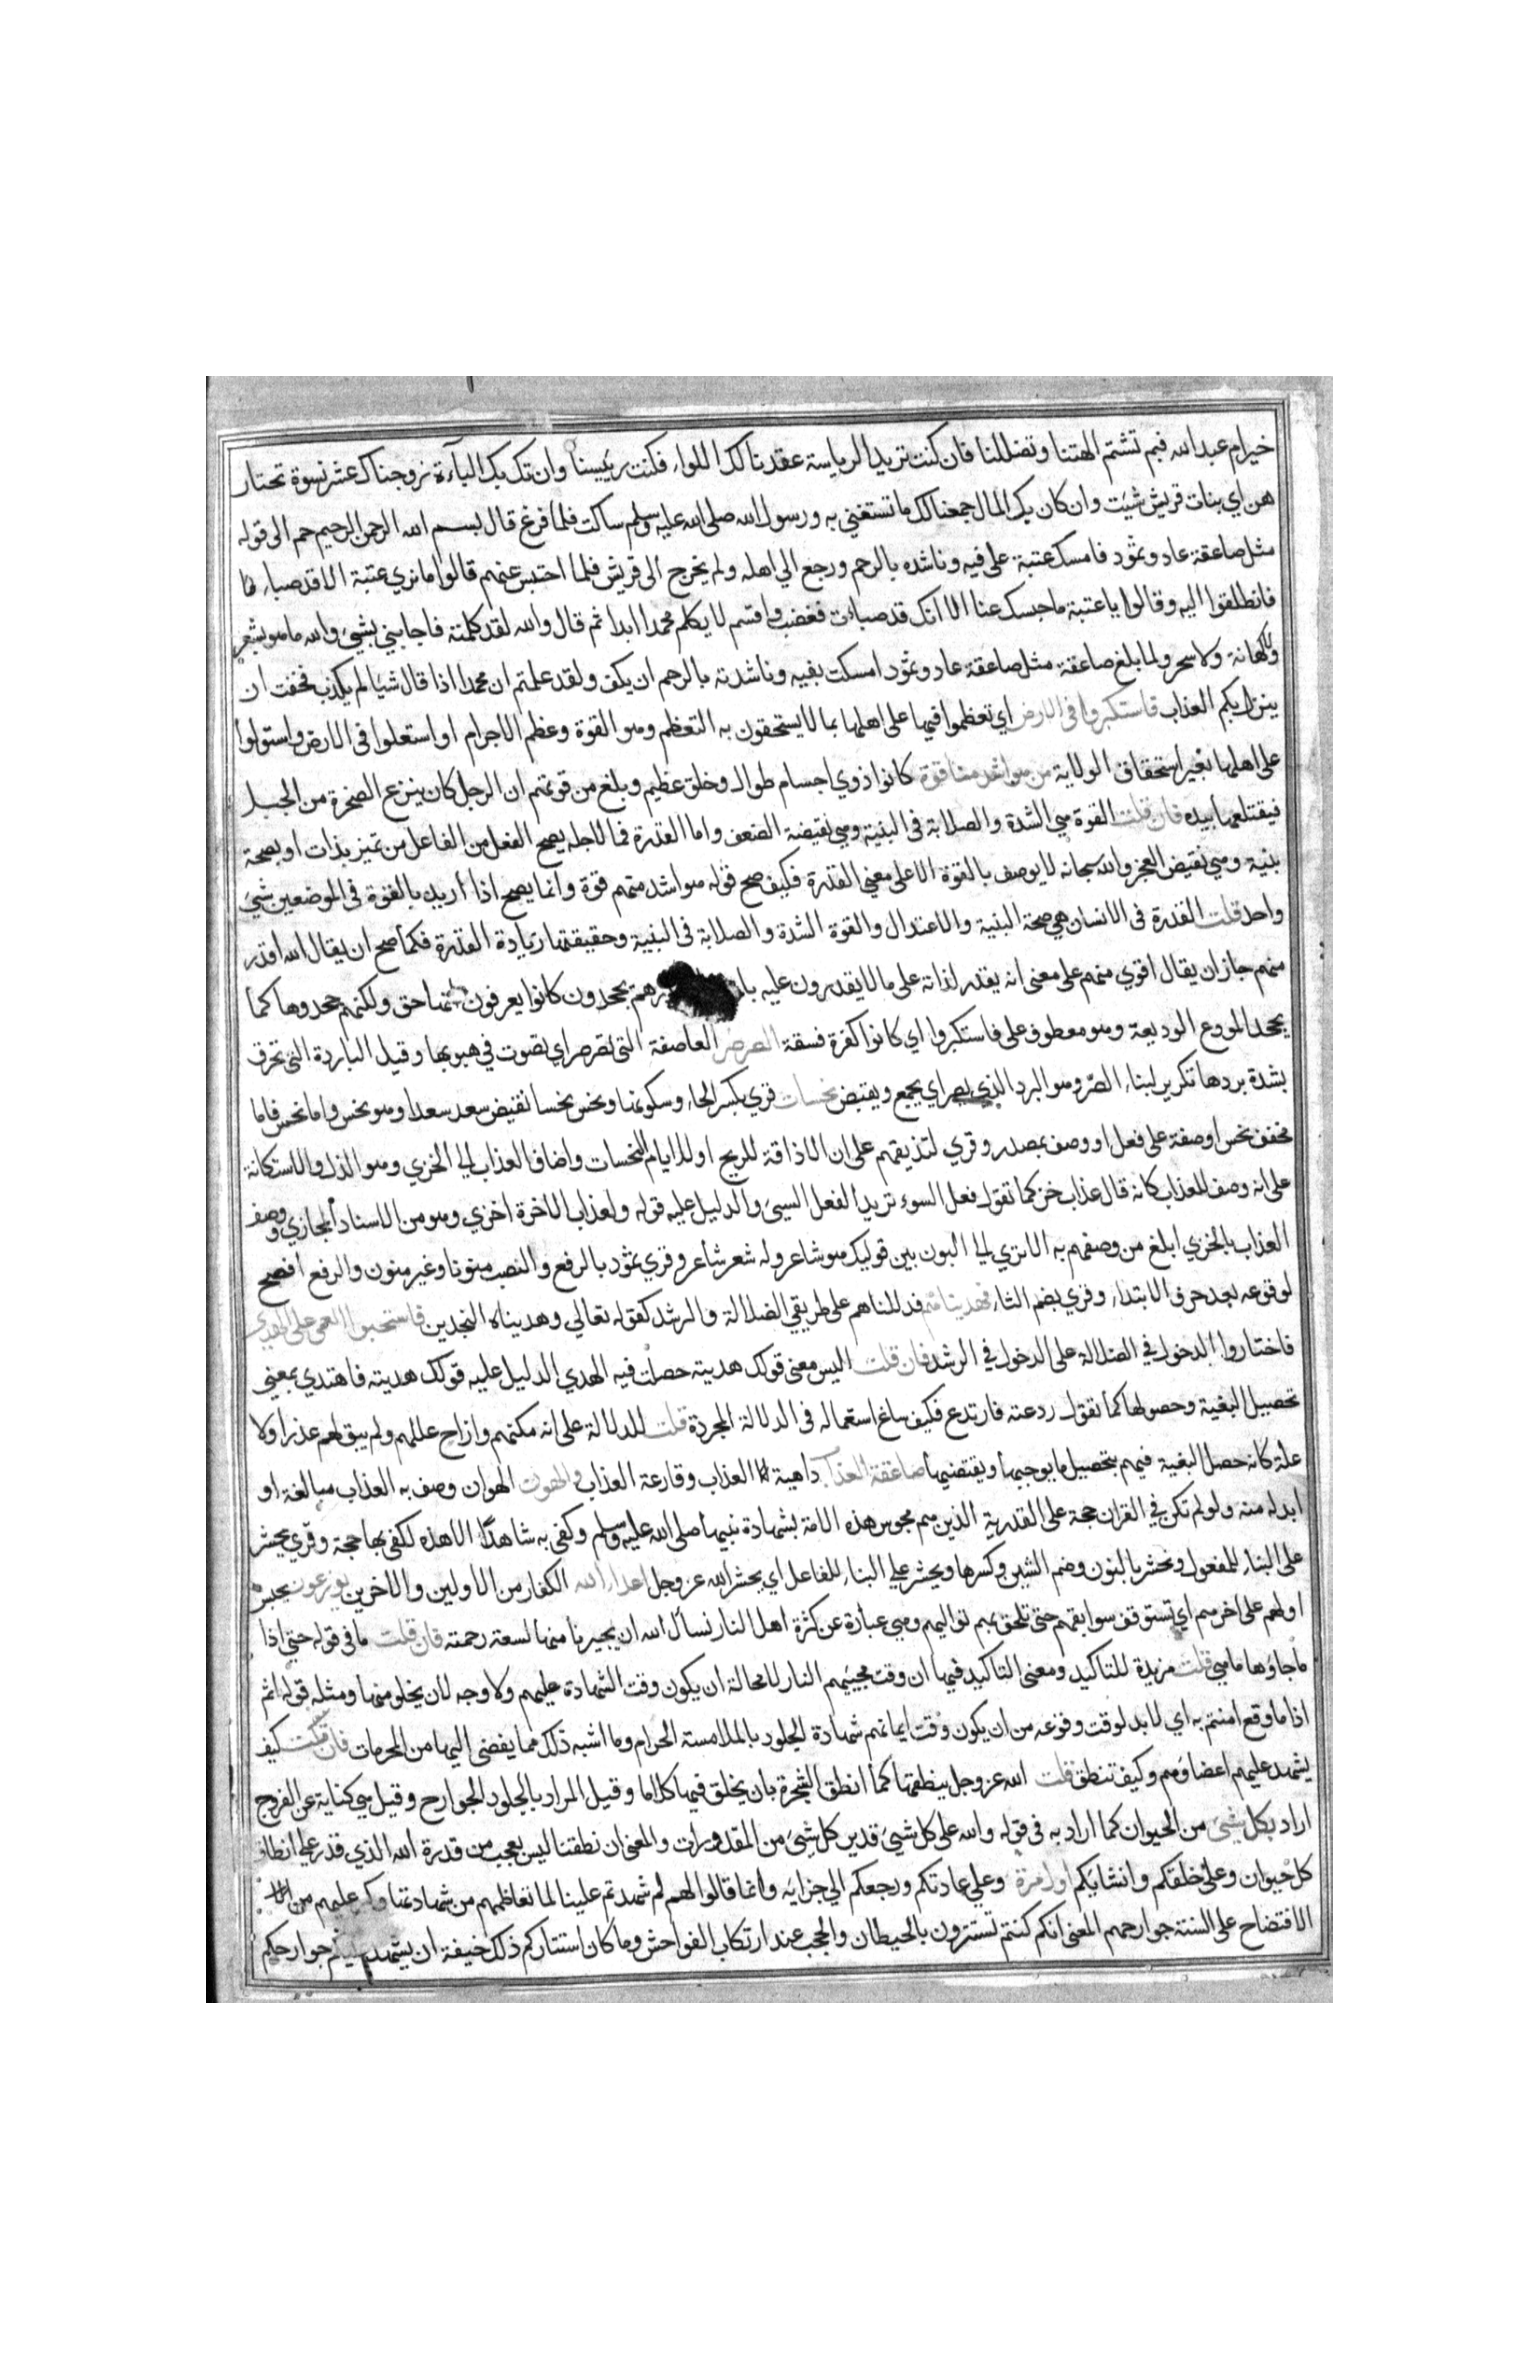 خير ام عبد الله فبم تشتم الهتنا وتضللنا فان كنت تريد الرياسة عقدنا لك اللواء فكنت رئيسنا وان تك بك الباءة زوجناك عشر نسوة تختار
هن اي بنات قريش شيت وان كان بك المال جمعنا لك ما تستغني به ورسول الله صلى الله عليه وسلم ساكت فلما فرغ قال بسم الله الرحمن الرحيم حم الى قوله
مثل صاعقة عاد وثمود فامسك عتبة على فيه وناشده بالرحم ورجع الي اهله ولم يخرج الى قريش فلما احتبس عنهم قالوا ما نري عتبة الا قد صبا
فانطلقوا اليه وقالوا يا عتبة ما حبسك عنا الا انك قد صبات فغضب واقسم لا يكلم محمدا ابدا ثم قال والله لقد كلمته فاجابني بشيء والله ما هو بشعر
ولا كهانة ولا سحر ولما بلغ صاعقة مثل صاعقة عاد وثمود امسكت بفيه وناشدته بالرحم ان يكف ولقد علمتم ان محمدا اذا قال شيا لم يكذب فخفت ان
ينزل بكم العذاب فاستكبروا في الارض اي تعظموا فيها على اهلها بما لا يستحقون به التعظم وهو القوة وعظم الاجرام او استعلوا في الارض واستولوا
على اهلها بغير استحقاق الولاية من هو اشد منا قوة كانوا ذوي اجسام طوال وخلق عظيم وبلغ من قوتهم ان الرجل كان ينزع الصخرة من الجبل
فيقتلعها بيده فان قلت القوة هي الشدة والصلابة في البنية وهي نقيضة الضعف واما القدرة فما لاجله يصح الفعل من الفاعل من تميز بذات او بصحة
بنية وهي نقيض العجز والله سبحانه لا يوصف بالقوة الا على معني القدرة فكيف صح قوله هو اشد منهم قوة وانما يصح اذا أريد بالقوة في الموضعين شيء
واحد قلت القدرة في الانسان هي صحة البنية والاعتدال والقوة الشدة والصلابة في البنية وحقيقتها زيادة القدرة فكما صح ان يقال الله اقدر
منهم جاز ان يقال اقوي منهم على معنى انه يقدر لذاته على ما لا يقدرون عليه يجحدون كانوا يعرفون انها حق ولكنهم جحدوها كما
يجحد المودع الوديعة وهو معطوف على فاستكبروا اي كانوا كفرة فسقة الصرصر العاصفة التي تصرصر اي تصوت في هبوبها وقيل الباردة التي تحرق
بشدة بردها تكرير لبناء الصر وهو البرد الذي يصر اي يجمع ويقبض نحسات قري بكسر الحاء وسكونها ونحس نحسا نقيض سعد سعدا وهو نحس واما نحس فاما
مخفف نحس او صفة على فعل او وصف بمصدر وقري لتذيقهم على ان الاذاقة للريح او للايام النحسات واضاف العذاب الى الخزي وهو الذل والاستكانة
على انه وصف للعذاب كانه قال عذاب خز كما تقول فعل السوء تريد الفعل السيئ والدليل عليه قوله ولعذاب الاخرة اخزي وهو من الاسناد المجازي ووصف
العذاب بالخزي ابلغ من وصفهم به الا تري الى البون بين قوليك هو شاعر وله شعر شاعر وقري ثمود بالرفع والنصب منونا وغير منون والرفع افصح
لوقوعه بعد حرف الابتداء وقري بضم الثاء فهديناهم فدللناهم على طريقي الضلالة والرشد كقوله تعالي وهديناه النجدين فاستحبوا العمى على الهدي
فاختاروا الدخول في الضلالة على الدخول في الرشد فان قلت اليس معنى قولك هديته حصلت فيه الهدي الدليل عليه قولك هديته فاهتدي بمعني
تحصيل البغية وحصولها كما تقول ردعته فارتدع فكيف ساغ استعماله في الدلالة المجردة قلت للدلالة على انه مكنهم وازاح عللهم ولم يبق لهم عذرا ولا
علة كانه حصل البغية فيهم بتحصيل ما يوجبها ويقتضيها صاعقة العذاب داهية العذاب وقارعة العذاب والهون الهوان وصف به العذاب مبالغة او
ابدله منه ولو لم تكن في القران حجة على القدرية الذين هم مجوس هذه الامة بشهادة نبيها صلى الله عليه وسلم وكفى به شاهدا الا هذه لكفي بها حجة وقري يحشر
على البناء للمفعول ونحشر بالنون وضم الشين وكسرها ويحشر علي البناء للفاعل اي يحشر الله عز وجل اعداء الله الكفار من الاولين والاخرين يوزعون يحبس
اولهم على اخرهم اي تستوقف سوابقهم حتى تلحق بهم تواليهم وهي عبارة عن كثرة اهل النار نسأل الله ان يجيرنا منها بسعة رحمته فان قلت ما في قوله حتي اذا
ما جاؤها ما هي قلت مزيدة للتاكيد ومعنى التاكيد فيها ان وقت مجيئهم النار لا محالة ان يكون وقت الشهادة عليهم ولا وجه لان يخلو منها ومثله قوله اثم
اذا ما وقع امنتم به اي لا بد لوقت وقوعه من ان يكون وقت ايمانهم شهادة الجلود بالملامسة الحرام وما اشبه ذلك مما يفضي اليها من المحرمات فان قلت كيف
يشهد عليهم اعضاؤهم وكيف تنطق قلت الله عز وجل ينطقها كما انطق الشجرة بان يخلق فيها كلاما وقيل المراد بالجلود الجوارح وقيل هي كناية عن الفروج
اراد بكل شيء من الحيوان كما اراد به في قوله والله على كل شيء قدير كل شيء من المقدورات والمعنى ان نطقنا ليس بعجب من قدرة الله الذي قدر علي انطاق
كل حيوان وعلى خلقكم وانشائكم اول مرة وعلي اعادتكم ورجعكم الي جزايه وانما قالوا لهم لم شهدتم علينا لما تعاظمهم من شهادتها وكبر عليهم من
الافتضاح على السنة جوارحهم المعنى انكم كنتم تستترون بالحيطان والحجب عند ارتكاب الفواحش وما كان استتاركم ذلك خيفة ان يشهد عليكم جوارحكم